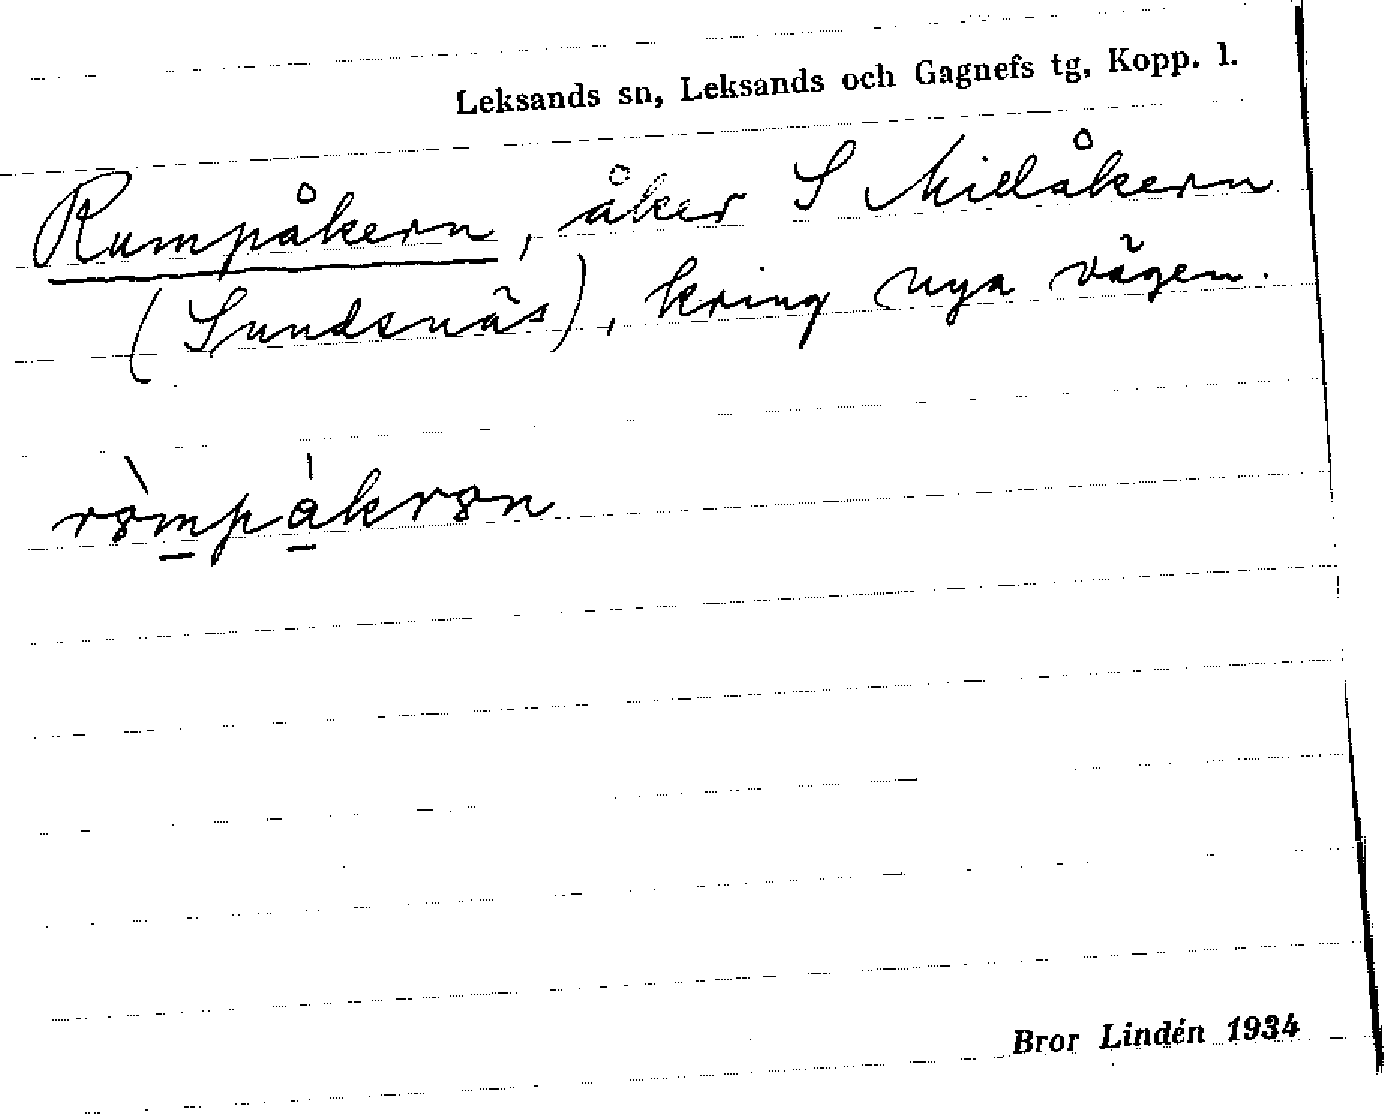 Leksands sn, Leksands och Gagnefs tg, Kopp. l.
Rumpåkern, åker S Millåkern
(Sundsnäs), kring nya vägen.
Bror Lindén 1934